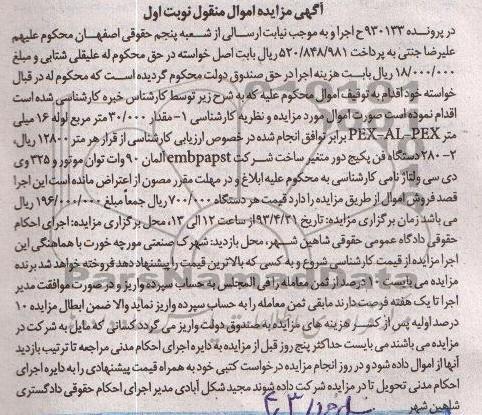 آگهی مزایده اموال منقول نوبت اول
در پرونده ۹۳۰۱۳۳ح اجرا و به موجب نیابت ارسالی از شعبه پنجم حقوقی اصفهان محکوم علیهم
علیرضا جنتی به پرداخت ۵۲۰/۸۴۸/۹۸۱ ریال بابت اصل خواسته در حق محکوم له علیقلی شتابی و مبلغ
۱۸/۰۰۰/۰۰۰ ریال بابت هزینه اجرا در حق صندوق دولت محکوم گردیده است که محکوم له در قبال
خواسته خود اقدام به توقیف اموال محکوم علیه که به شرح زیر توسط کارشناس خبره کارشناسی شده است
اقدام نموده است صورت اموال مورد مزایده و نظریه کارشناسی ۱- مقدار ۳۰/۰۰۰ متر مربع لوله ۱۶ میلی
متر PEX-AL-PEX برابر توافق انجام شده در خصوص ارزیابی کارشناسی از قرار هر متر ۱۲۸۰۰ ریال،
۲- ۲۸۰ دستگاه فن پکیج دور متغیر ساخت شرکت embpapst آلمان ۹۰ وات توان موتور و ۳۲۵ وی
دی سی ولتاژ نامی کارشناسی به محکوم علیه ابلاغ و در مهلت مقرر مصون از اعتراض مانده است این اجرا
قصد فروش اموال از طریق مزایده را دارد قیمت هر دستگاه ۷۰۰/۰۰۰ ریال جمعا مبلغ ۱۹۶/۰۰۰/۰۰۰ ریال
می باشد زمان برگزاری مزایده: تاریخ ۹۳/۴/۲۱ از ساعت ۱۲ الی ۱۳، محل برگزاری مزایده: اجرای احکام
حقوقی دادگاه عمومی حقوقی شاهین شهر، محل بازدید: شهرک صنعتی مورچه خورت با هماهنگی این
اجرا مزایده از قیمت کارشناسی شروع و به کسی که بالاترین قیمت را پیشنهاد دهد فروخته خواهد شد برنده
مزایده می بایست ۱۰ درصد از ثمن معامله را فی المجلس به حساب سپرده واریز و در صورت موافقت مدیر
اجرا تا یک هفته فرصت دارند مابقی ثمن معامله را به حساب سپرده واریز نماید والا ضمن ابطال مزایده ۱۰
درصد اولیه پس از کسر هزینه های مزایده به صندوق دولت واریز می گردد کسانی که مایل به شرکت در
مزایده می باشند می بایست حداکثر پنج روز قبل از مزایده به دایره اجرای احکام مدنی مراجعه تا ترتیب بازدید
آنها از اموال داده شود و در روز انجام مزایده درخواست کتبی خود به همراه قیمت پیشنهادی را به دایره اجرای
احکام مدنی تحویل تا در مزایده شرکت داده شوند مجید شکل آبادی مدیر اجرای احکام حقوقی دادگستری
شاهین شهر
ParsNamadData